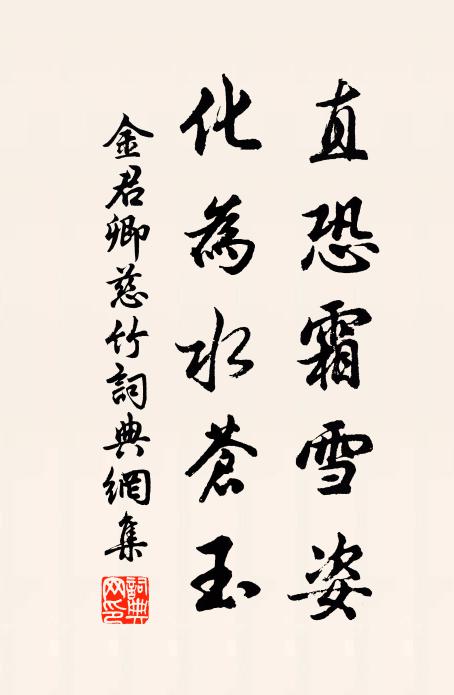 直恐霜雪姿
化為水蒼玉
金君卿慈竹詞典網集
詞典
网印